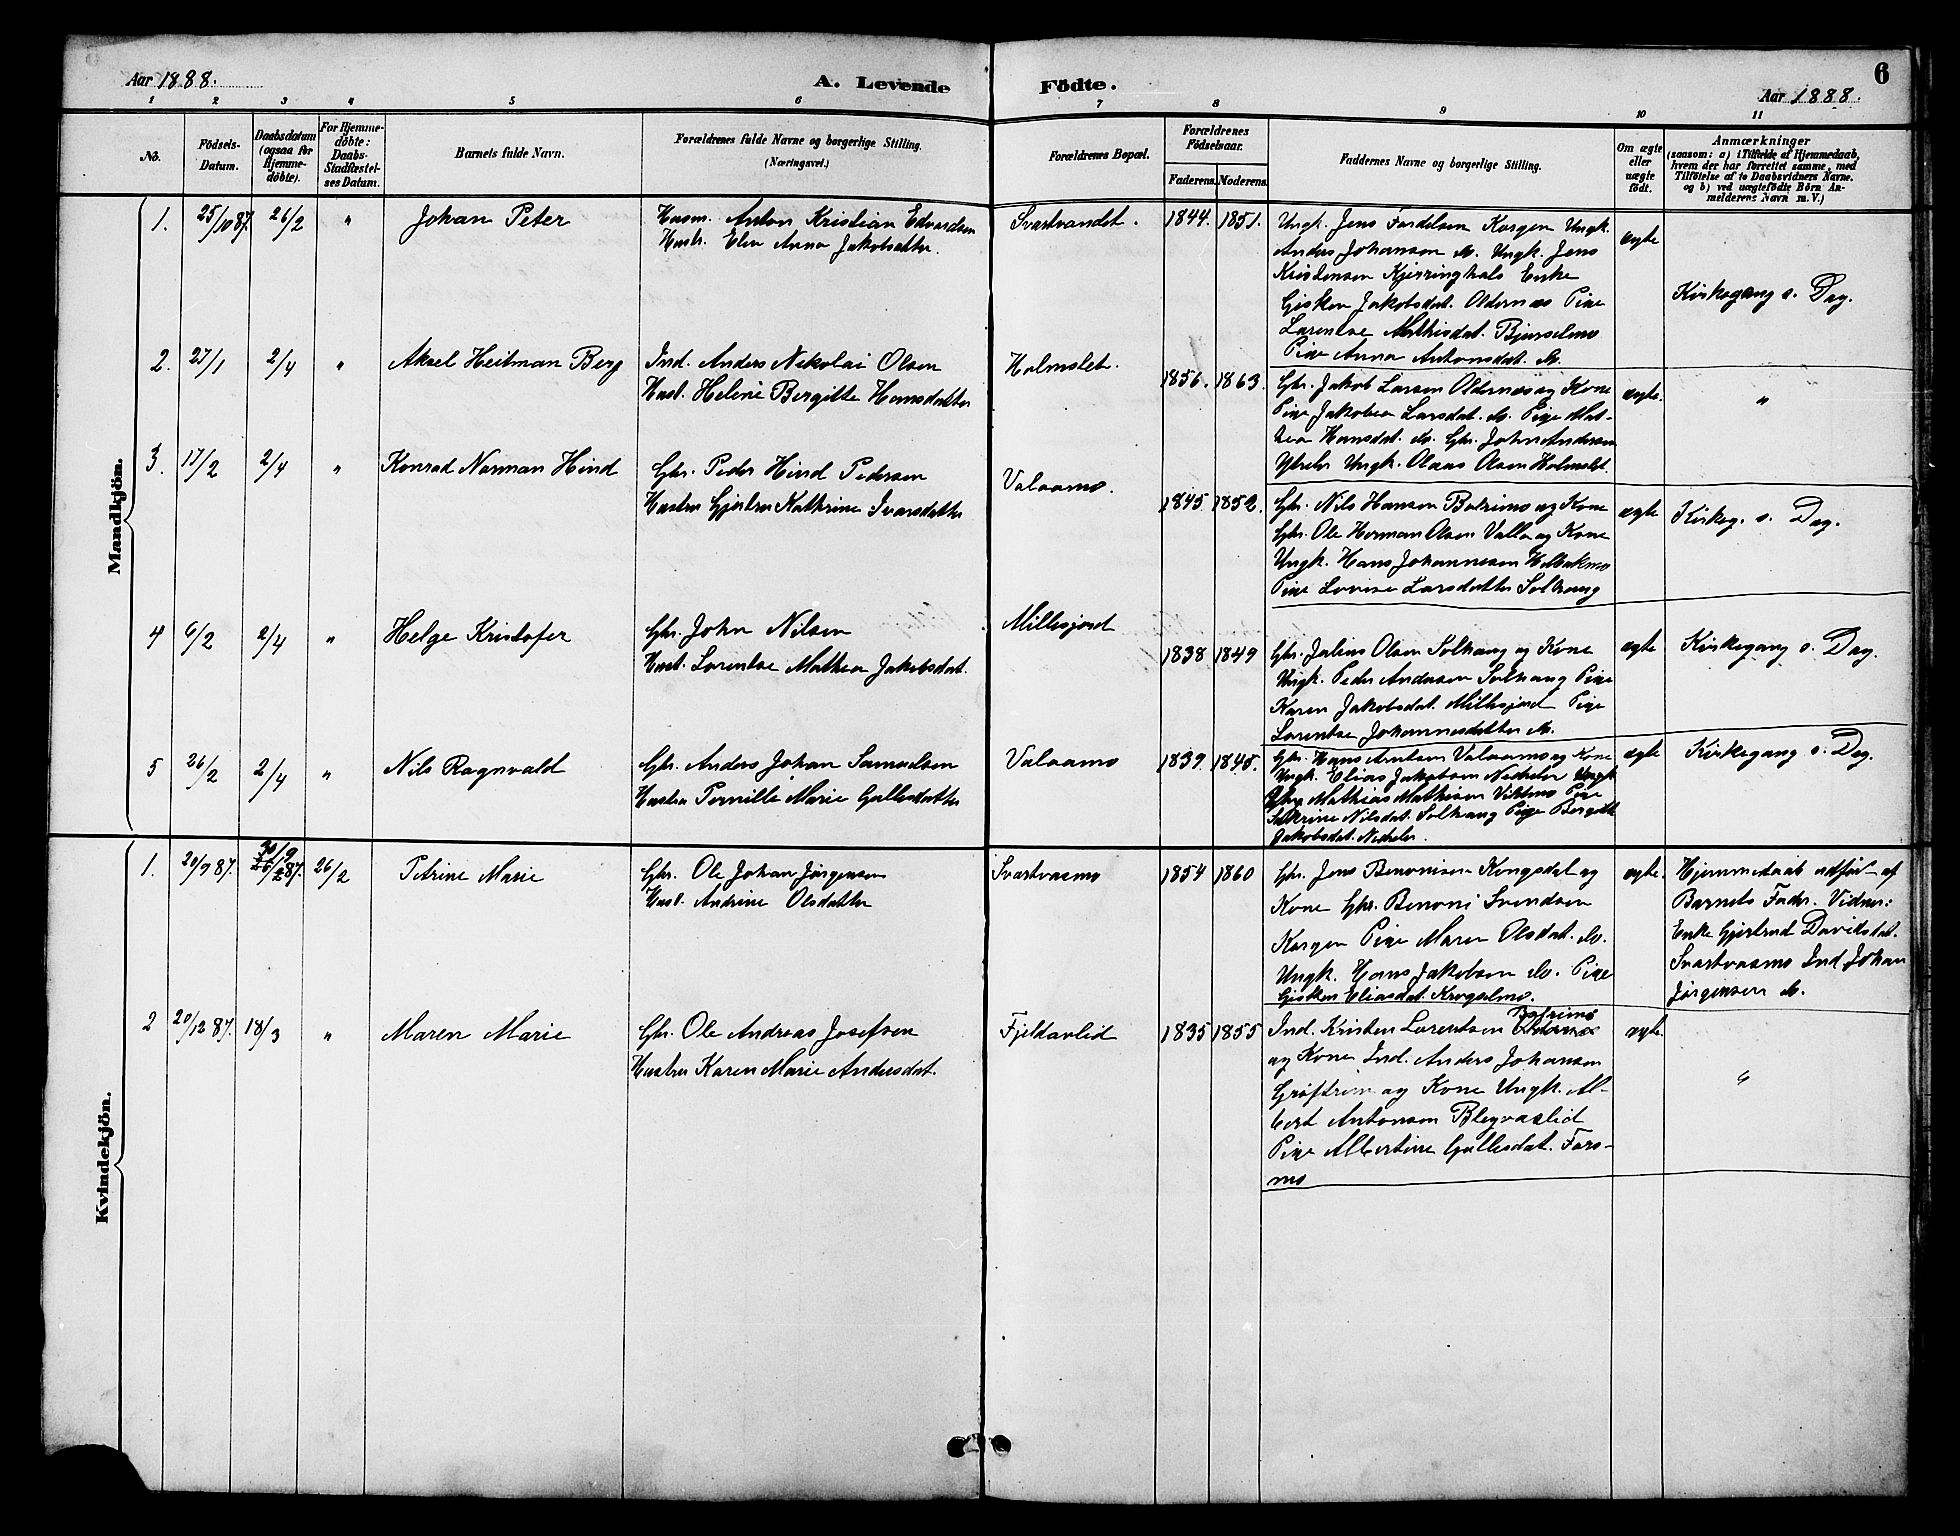 Aar 1888.
A. Levende
Födte.
6
Aar 1888.
1 2 3 4 5 6 7 8 9 10 11
No.
Födsels-
Datum.
Daabsdatum
(ogsaa for
Hjemme-
döbte).
For Hjemme-
döbte:
Daabs-
Stadfæstel-
ses Datum.
Barnets fulde Navn.
Forældrenes fulde Navne og borgerlige Stilling.
(Næringsvei.)
Forældrenes Bopæl.
Forældrenes
Födselsaar.
Faderens. Moderens.
Faddernes Navne og borgerlige Stilling.
Om ægte
eller
uægte
födt.
Anmærkninger
(saasom: a) i Tilfælde af Hjemmedaab,
hvem der har forrettet samme, med
Tilföielse af to Daabsvidners Navne.
og b) ved uægtefödte Börn An-
melderens Navn m. V.)
Mandkjön.
1. 25/10 87. 26/2 " Johan Peter
Husm. Anton Kristian Edvardsen
Hustr. Elen Anna Jakobsdtter.
Svartvandet. 1844. 1851.
Ungk. Jens Fordelsen Korgen Ungk.
Anders Johansen do. Ungk. Jens
Kristensen Kjerringhals Enke
Gjisken Jakobsdat. Oldernæs Pige
Larentse Mathisdat. Bjurselmo
Pige Anna Antonsdat. do.
ægte
Kirkegang s. Dag.
2. 27/1 2/4 " Aksel Heitman Berg
Ind. Anders Nikolai Olsen
Hust. Helene Bergitte Hansdatter
Holmslet. 1856. 1863.
Gbr. Jakob Larsen Oldernæs og Kone
Pige Jakobea Larsdat. do. Pige Mat-
hea Hansdat. do. Gbr. John Andersen
Ytreler Ungk. Olaus Olsen Holmslet.
ægte. "
3. 17/2 2/4 " Konrad Norman Hind
Gbr. Peder Hind Pedersen
Hustru Gjertru Kathrine Ivarsdatter
Valaamo. 1845. 1852.
Gbr. Nils Hansen Bolrimo og Kone
Gbr. Ole Herman Olsen Valla og Kone
Ungk. Hans Johannesen Holbekmo
Pige Lovise Larsdatter Solhaug
ægte Kirkeg. s. Dag.
4 6/2 2/4 " Helge Kristofer
Gbr. John Nilsen
Hust. Lorentse Mathea Jakobsdat.
Millesjord 1838 1849
Gbr. Julius Olsen Solhaug og Kone
Ungk. Peder Andersen Solhaug Pige
Karen Jakobsdat. Millesjord Pige
Lorentse Johannesdatter do.
ægte Kirkegang s. Dag.
5 26/2 2/4 " Nils Ragnvald
Gbr. Anders Johan Samuelsen
Hustru Pernille Marie Gullesdatter
Valaamo 1839. 1845.
Gbr. Hans Arntsen Valaamo og Kone
Ungk. Elias Jakobsen Nedreler Ungk
Mathias Mathisen Pige
Nilsdat. Solhaug Pige Bergitte
Jakobsdat. Nedreler.
ægte Kirkegang s. Dag.
Kvindekjön.
1. 20/9 87. 30/9 87. 26/2 Petrine Marie
Gbr. Ole Johan Jørgensen
Hust. Andrine Olsdatter
Svartvasmo 1854 1860
Gbr. Jens Benonisen Kongsdal og
Kone Gbr. Benoni Svendsen
Korgen Pige Maren Olsdat. do.
Ungk. Hans Jakobsen do. Pige
Gjisken Eliasdat. Krogselmo.
ægte.
Hjemmedaab udført af
Barnets Fader. Vidner:
Enke Gjertrud Davidsdat.
Svartvasmo Ind. Johan
Jørgensen do.
2 20/12 87. 18/3 " Maren Marie
Gbr. Ole Andreas Josefsen
Hustru Karen Marie Andersdat.
Fjeldavlid 1835 1855
Ind. Kristen Lorentsen Bolrimo
og Kone Ind. Anders Johansen
Grøftrem og Kone Ungk. Al-
bert Antonsen Bleyvaslid
Pige Albertine Gullesdat. Fors-
mo
ægte. "